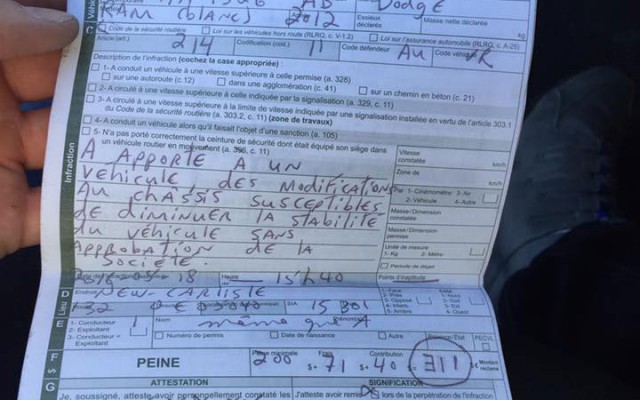 Dodge
RAM (blanc) 2012
Masse nette déclarée
kg
C
Code de la sécurité routière
Loi sur les véhicules hors route (RLRQ, c. V-1.2)
Loi sur l'assurance automobile (RLRQ, c. A-25)
Article (art.) 214 Codification (cod.) 11 Code défendeur AU Code véhic.
Description de l'infraction (cochez la case appropriée) :
1- A conduit un véhicule à une vitesse supérieure à celle permise (a. 328)
sur une autoroute (c.12) dans une agglomération (c. 41) sur un chemin en béton (c. 21)
2- A circulé à une vitesse supérieure à celle indiquée par la signalisation (a. 329, c. 11)
3- A circulé à une vitesse supérieure à la limite de vitesse indiquée par une signalisation installée en vertu de l'article 303.1
du Code de la sécurité routière (a. 303.2, c. 11) (zone de travaux)
4- A conduit un véhicule alors qu'il faisait l'objet d'une sanction (a. 105)
5- N'a pas porté correctement la ceinture de sécurité dont était équipé son siège dans
un véhicule routier en mouvement (a. 396, c. 11)
Infraction
A APPORTÉ À UN
VÉHICULE, DES MODIFICATIONS
AU CHÂSSIS SUSCEPTIBLES
DE DIMINUER LA STABILITÉ
DU VÉHICULE SANS
APPROBATION DE LA
SOCIÉTÉ.
Vitesse
constatée
km/h
Zone de
km/h
Par 1- Cinémomètre 3- Air
2- Véhicule 4- Autre
Masse/Dimension
constatée
Masse/Dimension
permise
Unité de mesure
1- Kg 2- Mètre
Période de dégel
18 Heure 15h40
Points d'inaptitude
D
Lieu
NEW-CARLISLE
132
15 301
E
1- Conducteur
2- Exploitant
3- Conducteur =
Exploitant
Nom même que A
Numéro de permis Date de naissance Autre PECVL
F
$
PEINE
Peine minimale 200 Frais $+ 71 Contribution $+ 40 $= 311 Montant
réclamé
G
ATTESTATION
SIGNATION
Je, soussigné, atteste avoir personnellement constaté les
J'atteste avoir remis
lors de la perpétration de l'infraction